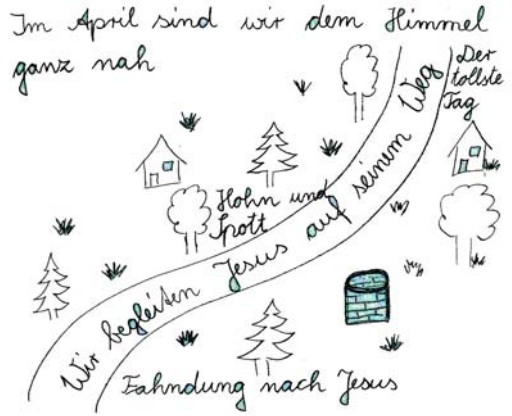 Im April sind wir dem Himmel
ganz nah
Der
tollste
Tag
Hohn und
Spott
Wir begleiten Jesus auf seinem Weg
Fahndung nach Jesus